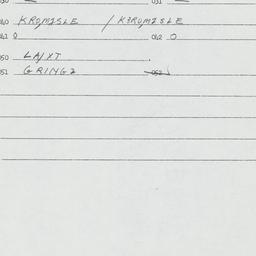 040 KROMISLE / K3ROMISLE
041 0 042 0
050 LA/XT
051 GRINGZ 052